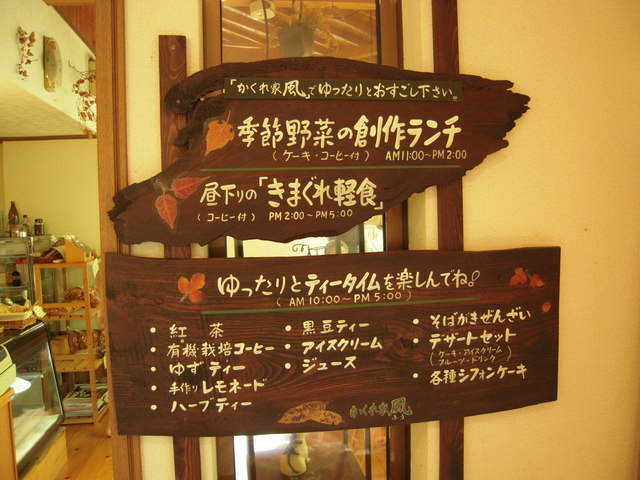 「かくれ家風」でゆったりとおすごし下さい。
季節野菜の創作ランチ
(ケーキ・コーヒー付) AM11:00~PM2:00
昼下りの「きまぐれ軽食」
(コーヒー付) PM2:00~PM5:00
ゆったりとティータイムを楽しんでね。
(AM10:00~PM5:00)
・紅 茶
・有機栽培コーヒー
・ゆずティー
・手作りレモネード
・ハーブティー
・黒豆ティー
・アイスクリーム
・ジュース
・そばがきぜんざい
・デザートセット
(ケーキ・アイスクリーム
フルーツ・ドリンク)
・各種シフォンケーキ
かくれ家風
ふう